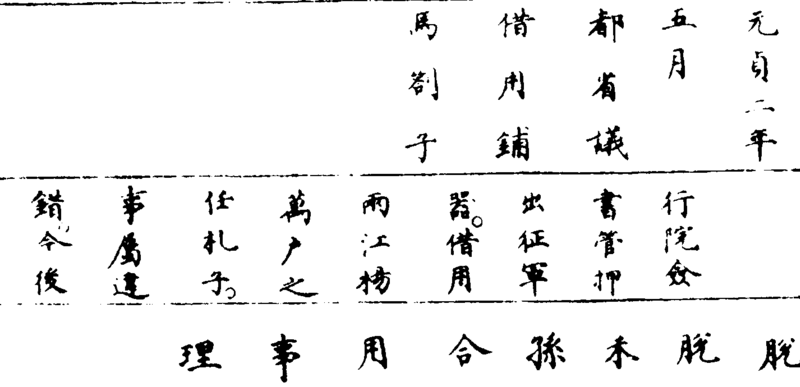 元貞二年
五月
都省議
借用鋪
馬劄子
行院僉
書管押
出征軍
器。借用
兩江楊
萬户之
任札子,
事屬違
錯,今後
脫脫禾孫合用事理